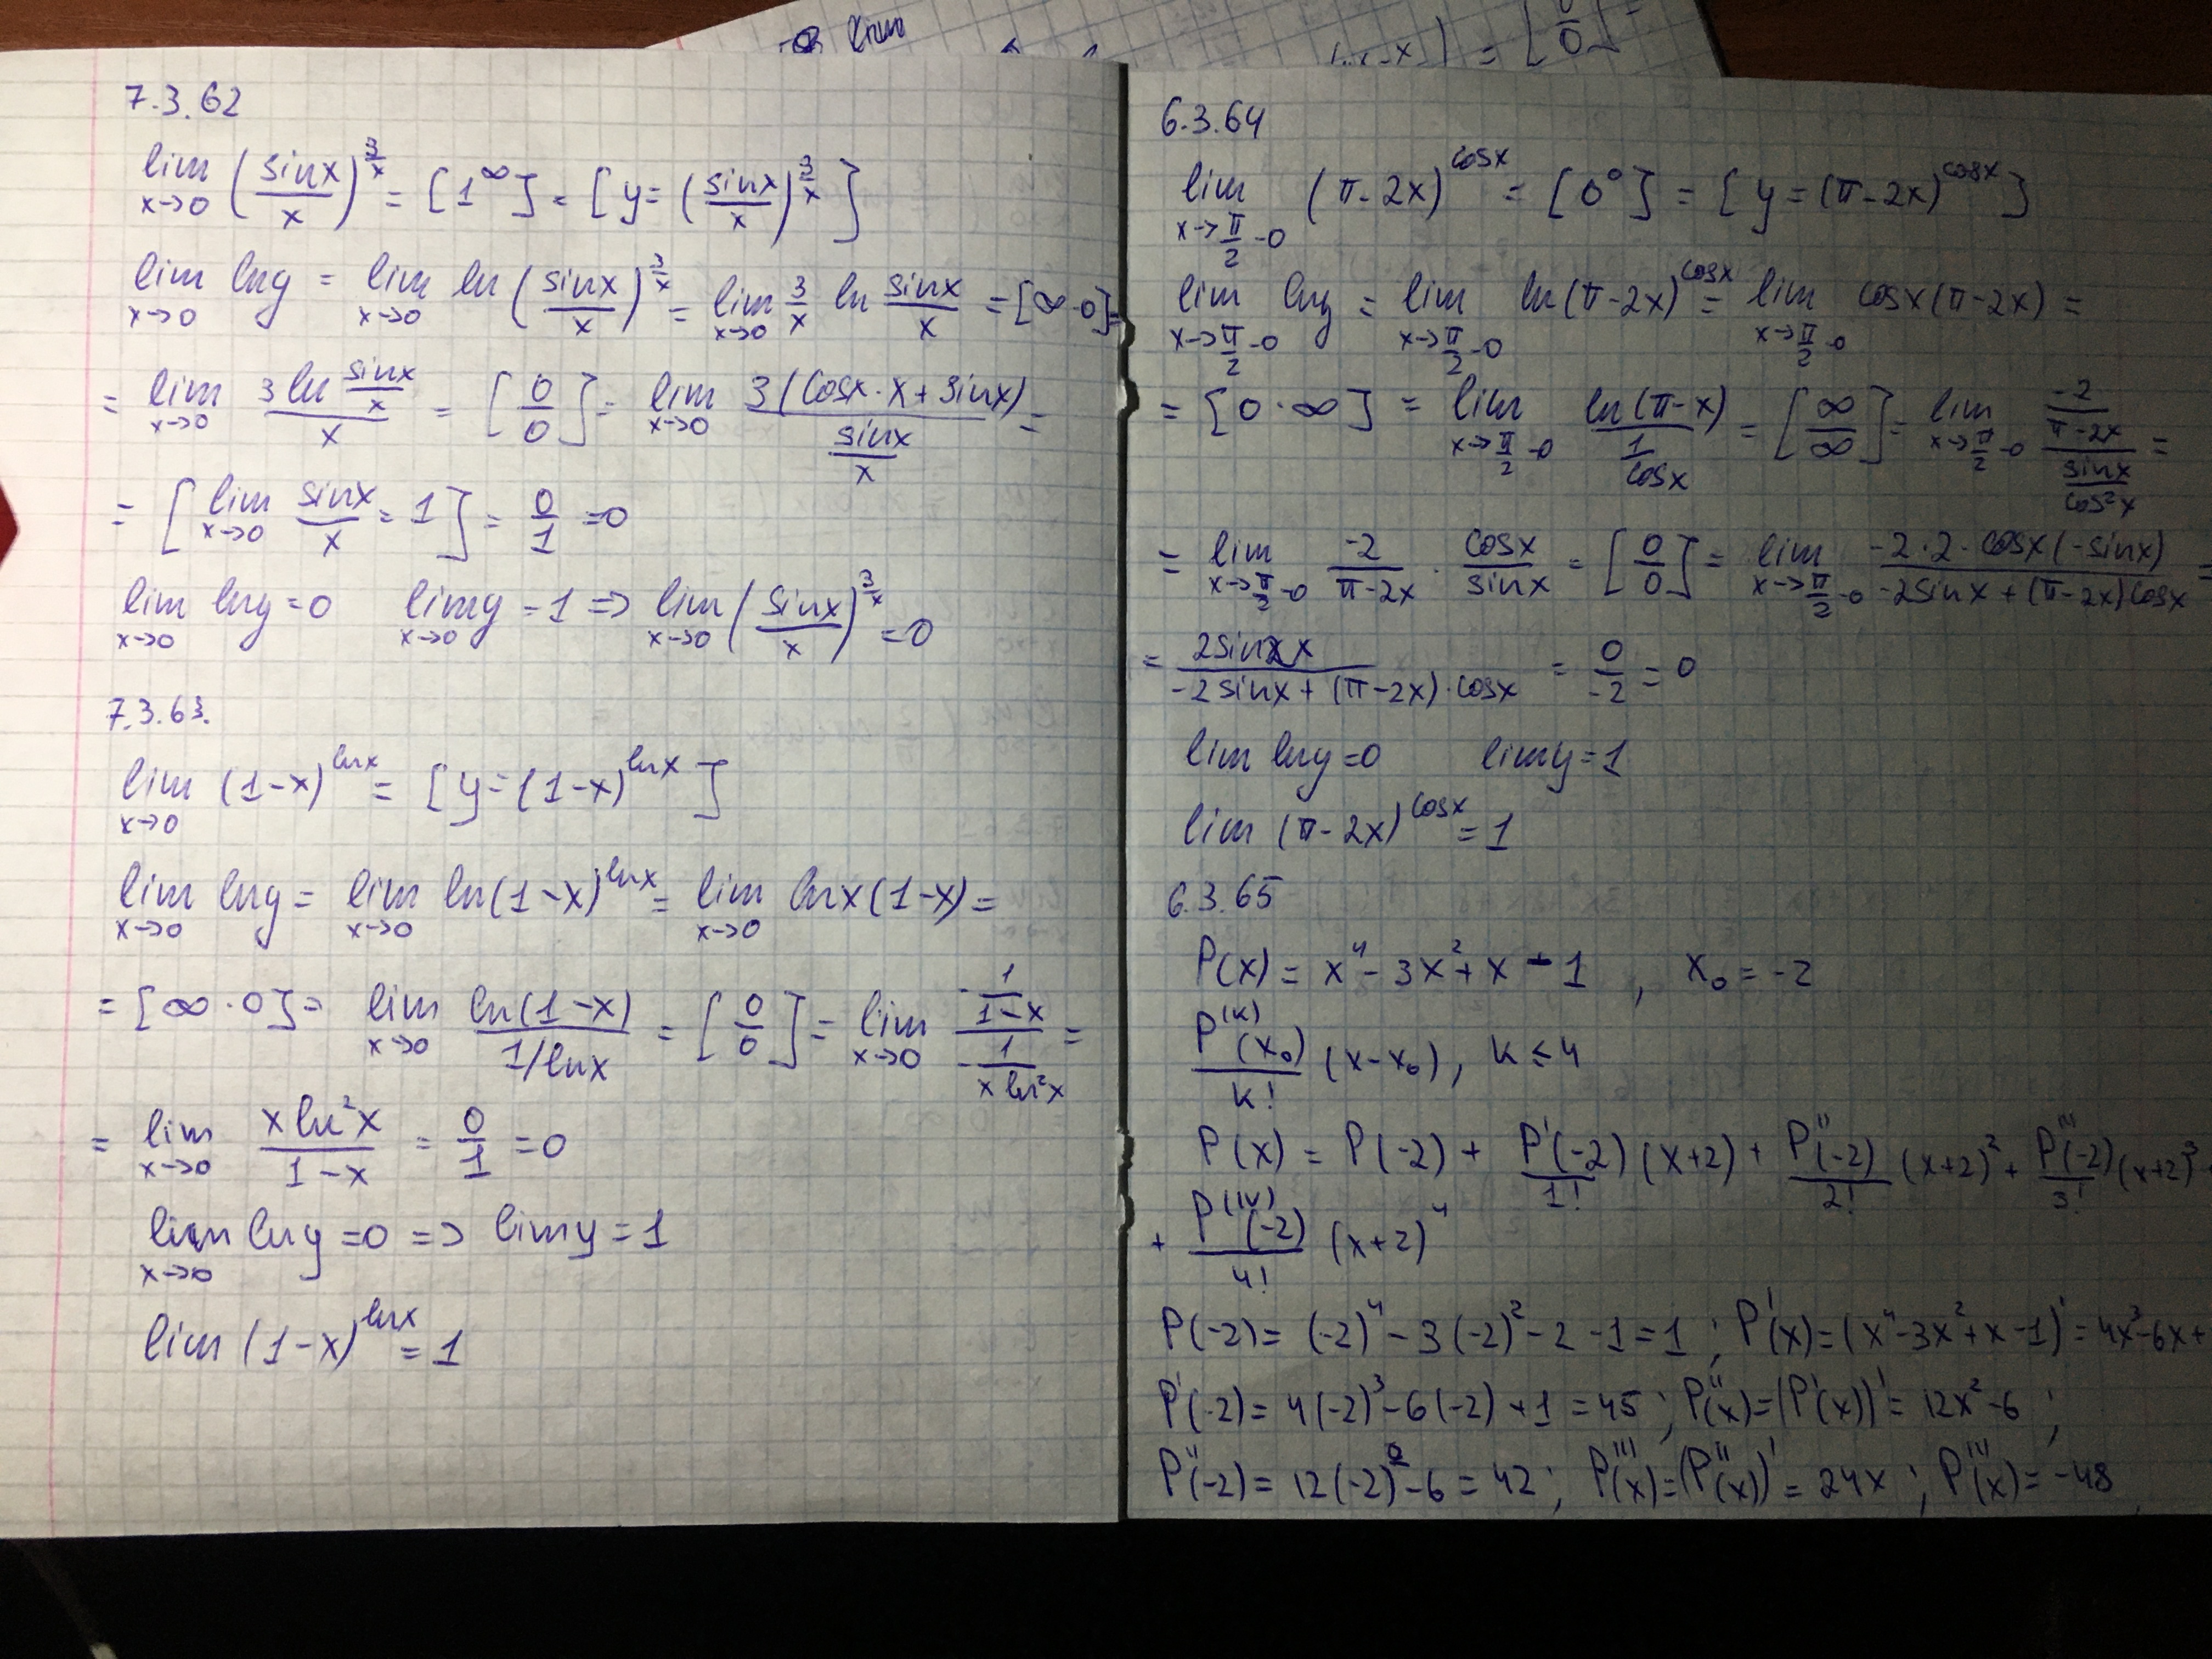 lim
7.3.62
lim x→0 (sinx/x)^(3/x) = [1^∞] = [y = (sinx/x)^(3/x)]
lim x→0 lny = lim x→0 ln(sinx/x)^(3/x) = lim x→0 3/x ln sinx/x = [∞·0] =
= lim x→0 (3 ln sinx/x)/x = [0/0] = lim x→0 3(cosx·x + sinx)/(sinx/x) =
= [lim x→0 sinx/x = 1] = 0/1 = 0
lim x→0 lny = 0 lim x→0 y = 1 => lim x→0 (sinx/x)^(3/x) = 0
7.3.63.
lim x→0 (1-x)^lnx = [y = (1-x)^lnx]
lim x→0 lny = lim x→0 ln(1-x)^lnx = lim x→0 lnx(1-x) =
= [∞·0] = lim x→0 ln(1-x)/(1/lnx) = [0/0] = lim x→0 (-1/(1-x))/(-1/(x ln²x)) =
= lim x→0 (x ln²x)/(1-x) = 0/1 = 0
lim x→0 lny = 0 => limy = 1
lim (1-x)^lnx = 1
6.3.64
lim x→π/2-0 (π-2x)^cosx = [0⁰] = [y = (π-2x)^cosx]
lim x→π/2-0 lny = lim x→π/2-0 ln(π-2x)^cosx = lim x→π/2-0 cosx(π-2x) =
= [0·∞] = lim x→π/2-0 ln(π-x)/(1/cosx) = [∞/∞] = lim x→π/2-0 (-2/(π-2x))/(sinx/cos²x) =
= lim x→π/2-0 -2/(π-2x) · cosx/sinx = [0/0] = lim x→π/2-0 (-2·2·cosx(-sinx))/(-2sinx+(π-2x)cosx) =
= 2sin2x/(-2sinx+(π-2x)·cosx) = 0/-2 = 0
lim lny = 0 limy = 1
lim (π-2x)^cosx = 1
6.3.65
P(x) = x⁴ - 3x² + x - 1 , x₀ = -2
P^(k)(x₀)/k! (x-x₀), k ≤ 4
P(x) = P(-2) + P'(-2)/1! (x+2) + P''(-2)/2! (x+2)² + P'''(-2)/3! (x+2)³ +
+ P^(IV)(-2)/4! (x+2)⁴
P(-2) = (-2)⁴ - 3(-2)² - 2 - 1 = 1 ; P'(x) = (x⁴-3x²+x-1)' = 4x³-6x+
P'(-2) = 4(-2)³ - 6(-2) + 1 = 45 ; P''(x) = (P'(x))' = 12x²-6 ;
P''(-2) = 12(-2)² - 6 = 42 ; P'''(x) = (P''(x))' = 24x ; P'''(x) = -48